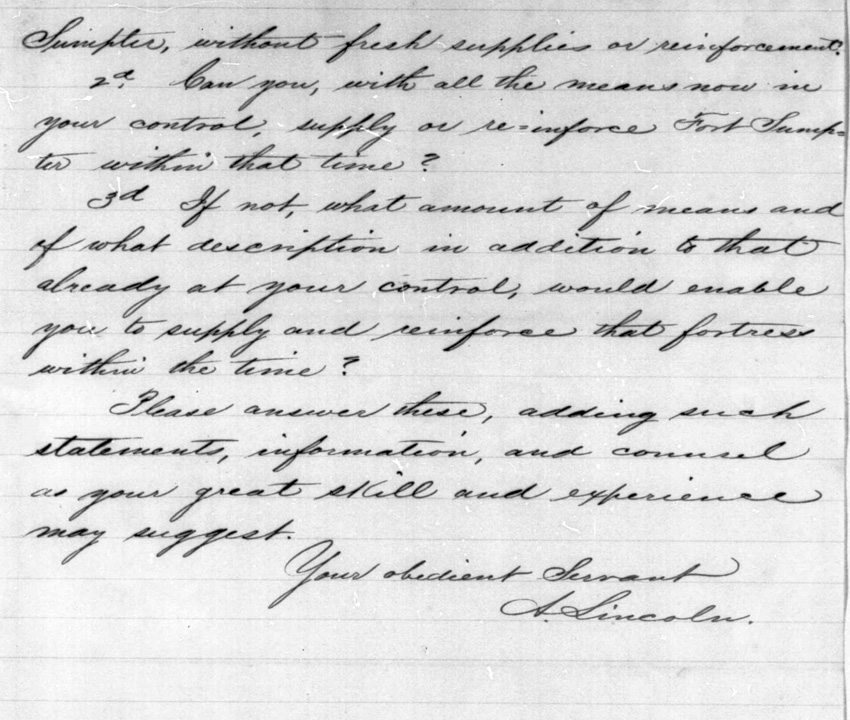 Sumpter, without fresh supplies or reinforcement?
2d. Can you, with all the means now in
your control, supply or re=inforce Fort Sump=
ter within that time?
3d If not, what amount of means and
of what description in addition to that
already at your control, would enable
you to supply and reinforce that fortress
within the time?
Please answer these, adding such
statements, information, and counsel
as your great skill and experience
may suggest.
Your obedient Servant
A. Lincoln.